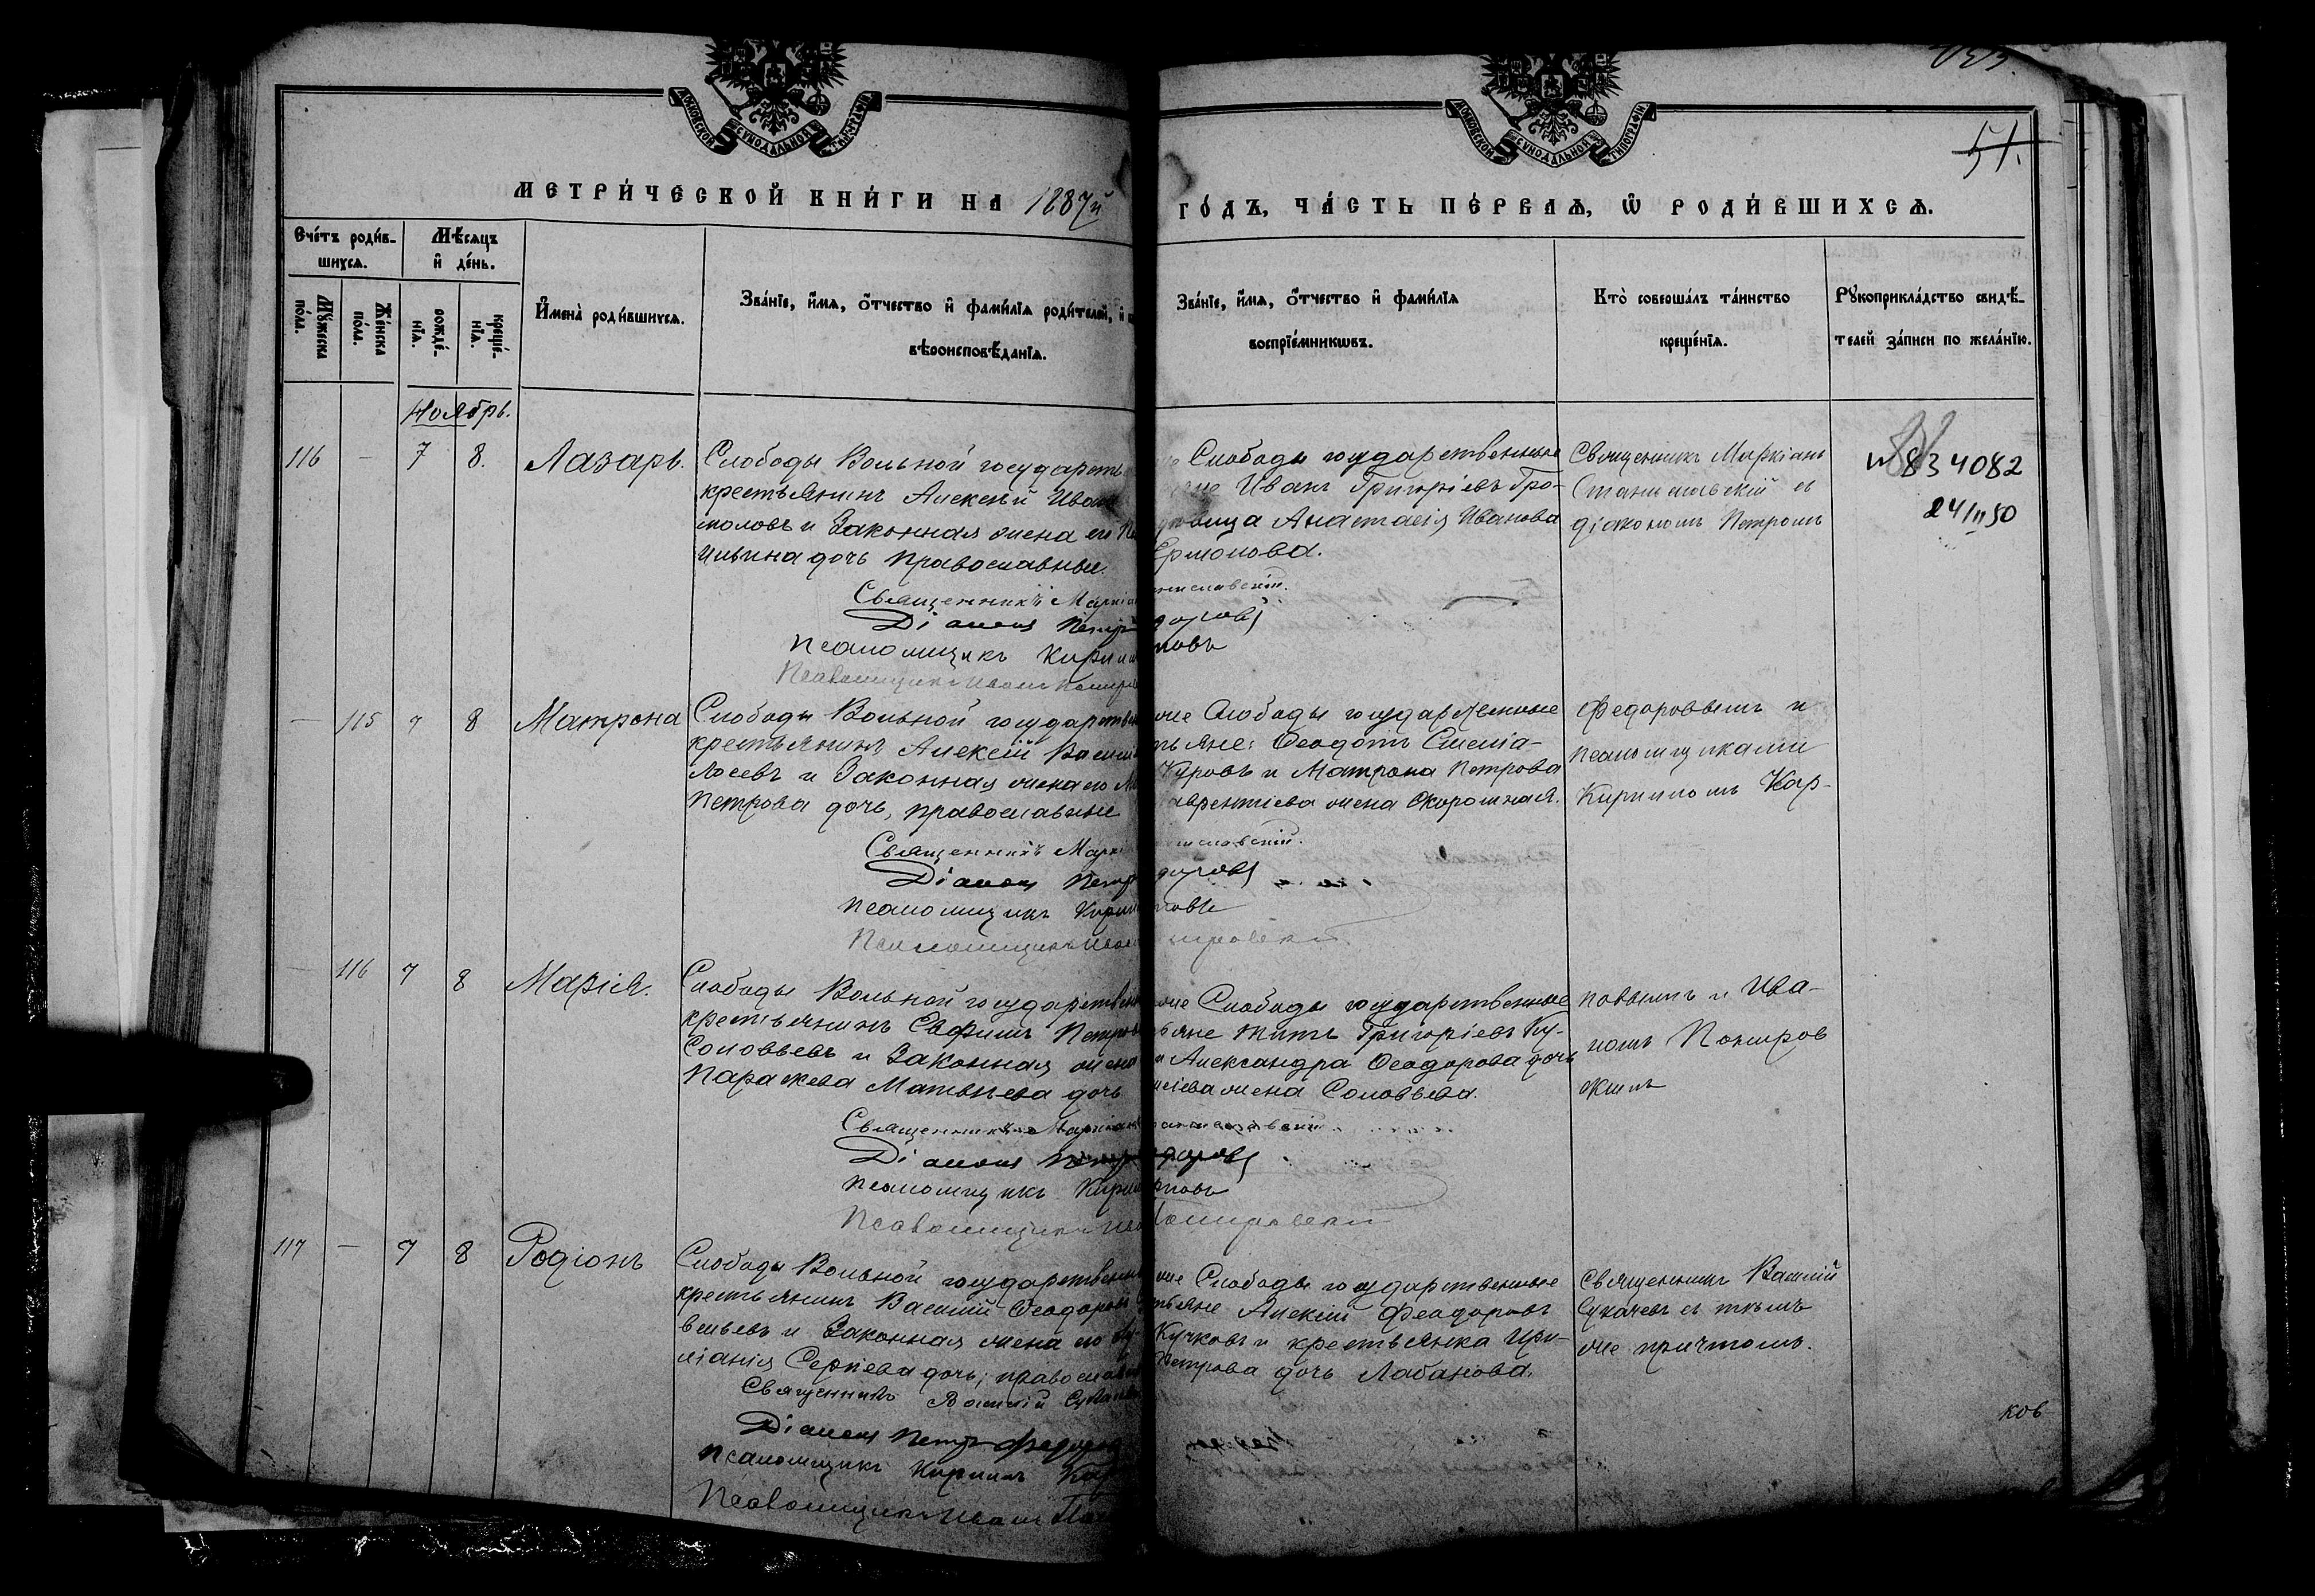 МОСКОВСКОЙ СѴНОДАЛЬНОЙ ТИПОГРАФІИ
МОСКОВСКОЙ СѴНОДАЛЬНОЙ ТИПОГРАФІИ
51.
МЕТРИ́ЧЕСКОЙ КНИ́ГИ НА 1887й
ГО́ДЪ, ЧА́СТЬ ПЕ́РВАѦ, Ѡ҆ РОДИ́ВШИХСѦ.
Сче́тъ роди́в-
шихсѧ.
Мѣ́сѧцъ
и҆ де́нь.
Мꙋ́жеска
по́ла.
Же́нска
по́ла.
рожде́-
нїѧ.
креще́-
нїѧ.
И҆мена̀ роди́вшихсѧ.
Зва́нїе, и҆́мѧ, о҆́тчество и҆ фами́лїѧ роди́телей, и҆
вѣроисповѣ́данїѧ.
Зва́нїе, и҆́мѧ, о҆́тчество и҆ фами́лїѧ
воспрїе́мникѡвъ.
Кто̀ соверша́лъ та́инство
креще́нїѧ.
Рꙋкоприкла́дство свидѣ́-
телей за́писи по жела́нїю.
Ноябрь.
116 — 7 8. Лазарь.
Слободы Вольной государств
крестьянинъ Алексѣй Иван
моловъ и законная жена его
Ильина дочь православные.
Священникъ Маркіан
Діаконъ Петръ
Псаломщикъ Кирилл
Псаломщикъ Иванъ Покиров
Слободы государственные
Иванъ Григорьевъ Гро-
Анастасія Иванова
Ермолова.
ниславскій.
доровъ
повъ
Священникъ Маркіанъ
Станиславскій съ
діакономъ Петромъ
834082
24/II 50
— 115 7 8 Матрона
Слободы Вольной государствен
крестьянинъ Алексѣй Васил
Лосевъ и законная жена его М
Петрова дочь, православные
Священникъ Маркі
Діаконъ Петр
Псаломщикъ Кирил
Псаломщикъ Иван
же Слободы государственные
тьяне: Ѳеодотъ
Куровъ и Матрона Петрова
аврентіева жена Скорошная.
ниславскій.
доровъ
повъ
Федоровымъ и
псаломщиками
Кирилломъ Кар-
— 116 7 8 Марія.
Слободы Вольной государствен
крестьянинъ Евфимъ Петров
Соловьевъ и законная жена
Параскева Матвѣева дочь
Священникъ Маркіан
Діаконъ Петр
Псаломщикъ Кирил
Псаломщикъ Ива
же Слободы государственные
ьяне Титъ Григоріевъ Ку-
и Александра Ѳеодорова дочь
жена Соловьева.
ниславскій.
доровъ
рповъ
Покировскій
повымъ и Ива-
номъ Покиров
скимъ
117 — 7 8 Родіонъ
Слободы Вольной государственн
крестьянинъ Василій Ѳеодоров
и законная жена его
ліанія Сергіева дочь; православн
Священникъ Василій Сукаче
Діаконъ Петръ Федоров
Псаломщикъ Кириллъ Кар
Псаломщикъ Иванъ Пок
же Слободы государственные
тьяне Алексій Феодоровъ
Кучковъ и крестьянка Ири-
Петрова дочь Лабанова.
Священникъ Василій
Сукачевъ съ тѣмъ
же причтомъ.
ков